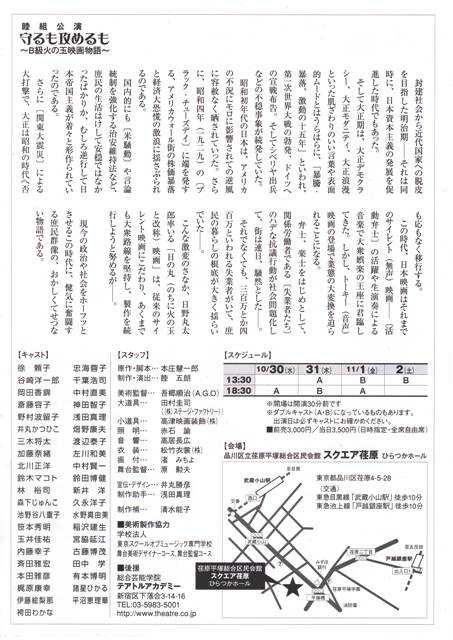 睦組公演
守るも攻めるも
〜B級火の玉映画物語〜
封建社会から近代国家への脱皮
を目指した明治期――それは同
時に、日本資本主義の発展を促
進した時代でもあった。
そして大正期は、大正デモクラ
シー、大正モダニティ、大正浪漫
といった肌ざわりのいい言葉や表面
的ムードとはうらはらに、「暴騰・
暴落、激動の十五年」といわれ、
第一次世界大戦の勃発、ドイツへ
の宣戦布告、そしてシベリヤ出兵
などの不穏事象が続発していた。
昭和初年代の日本は、アメリカ
の不況にモロに影響されての逆風
に容赦なく晒されていった。さら
に、昭和四年(一九二九)の「ブ
ラック・チューズデイ」に端を発す
る、アメリカウォール街の株価暴落
と経済大恐慌の激浪に揺さぶられ
るのである。
国内的にも「米騒動」や言論
統制を強化する治安維持法などで
庶民の生活はけして安穏ではなか
ったばかりか、むしろ逆行して日
本帝国主義が着々と形作られてい
ったのである。
さらに「関東大震災」による
大打撃で、大正は昭和の時代へ否
も応もなく移行する。
この時代、日本映画はそれまで
のサイレント(無声)映画――(活
動弁士)の活躍や生演奏による
音楽で大衆娯楽の王座に君臨し
てきた。しかし、トーキー(音声)
映画の登場で業態の大変換を迫ら
れることになる。
弁士、楽士をはじめとして、
関係労働者である(失業者たち)
のハデな抗議行動が社会問題化し
て、街は連日、騒然とした――。
それでなくても、三百万とか四
百万といわれる失業者がいて、庶
民の暮らしの根底が大きく揺らい
でいた――。
こんな激変のさなか、日野丸太
郎率いる「日の丸」(のちに火の玉
と改称)映画」は、従来のサイ
レント映画にこだわり、あくまで
も大衆路線を堅持し、製作を続
行しようと努めるが――。
現今の政治や社会をホーフツと
させるこの時代に、健気に奮闘す
る庶民群像の、おかしくてせつな
い物語である。
【キャスト】
徐 頼子 忠海蓉子
谷崎洋一郎 千葉浩司
岡田香錦 中村直美
斎藤容子 神田智子
野村波留子 浅田真理
井丸かつひこ 畑野康夫
三木将太 渡辺恭子
加藤奈緒 左川和美
北川正洋 中村賢一
鈴木マコト 鈴田博健
林 裕司 新井 洋
森下じゅんこ 久永洋子
池野谷八重子 水野真由美
笹本秀明 稲沢建生
玉井佳祐 宮脇延江
内藤幸子 古藤博茂
斉田雅宏 田中 学
本田雅彦 有本博明
梶原康幸 諸星ひかる
伊藤絵梨那 平沼恵理華
袴田わかな
【スタッフ】
原作・脚本… 本庄慧一郎
制作・演出… 睦 五朗
美術監督… 吾郷順治(A.G.O)
大道具… 田村圭司
((株)ステージ・ファクトリー)
小道具… 高津映画装飾(株)
照 明… 赤石 諭
音 響… 高居長広
衣 装… 松竹衣裳(株)
振 付… 渚 みちよ
舞台監督… 原 勲夫
宣伝・デザイン… 井丸勝彦
制作助手… 浅田真理
制作補… 清水能子
■美術製作協力
学校法人
東京スクールオブミュージック専門学校
舞台美術デザイナーコース、舞台監督コース
■後援
総合芸能学院
テアトルアカデミー
新宿区下落合3-14-16
TEL:03-5983-5001
http://www.theatre.co.jp
【スケジュール】
10/30(水) 31(木) 11/1(金) 2(土)
13:30 A B B
18:30 A B A
※開場は開演30分前です
※ダブルキャスト(A・B)になっているものもあります。
出演日は必ずキャストにお確かめください。
■前売3,000円/当日3,500円(日時指定・全席自由)
【会場】
品川区立荏原平塚総合区民会館 スクエア荏原 ひらつかホール
東京都品川区荏原4-5-28
(交通)
東急目黒線「武蔵小山駅」徒歩10分
東急池上線「戸越銀座駅」徒歩10分
至目黒
武蔵小山駅
西口
交番
至五反田
戸越銀座駅
出入口1
荏原二丁目
荏原平塚学園
平塚橋
消防署
荏原平塚総合区民会館
スクエア荏原
ひらつかホール